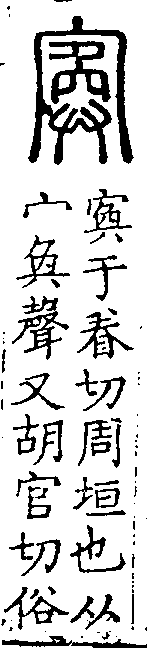 寏
寏于眷切周垣也从
宀奐聲又胡官切俗